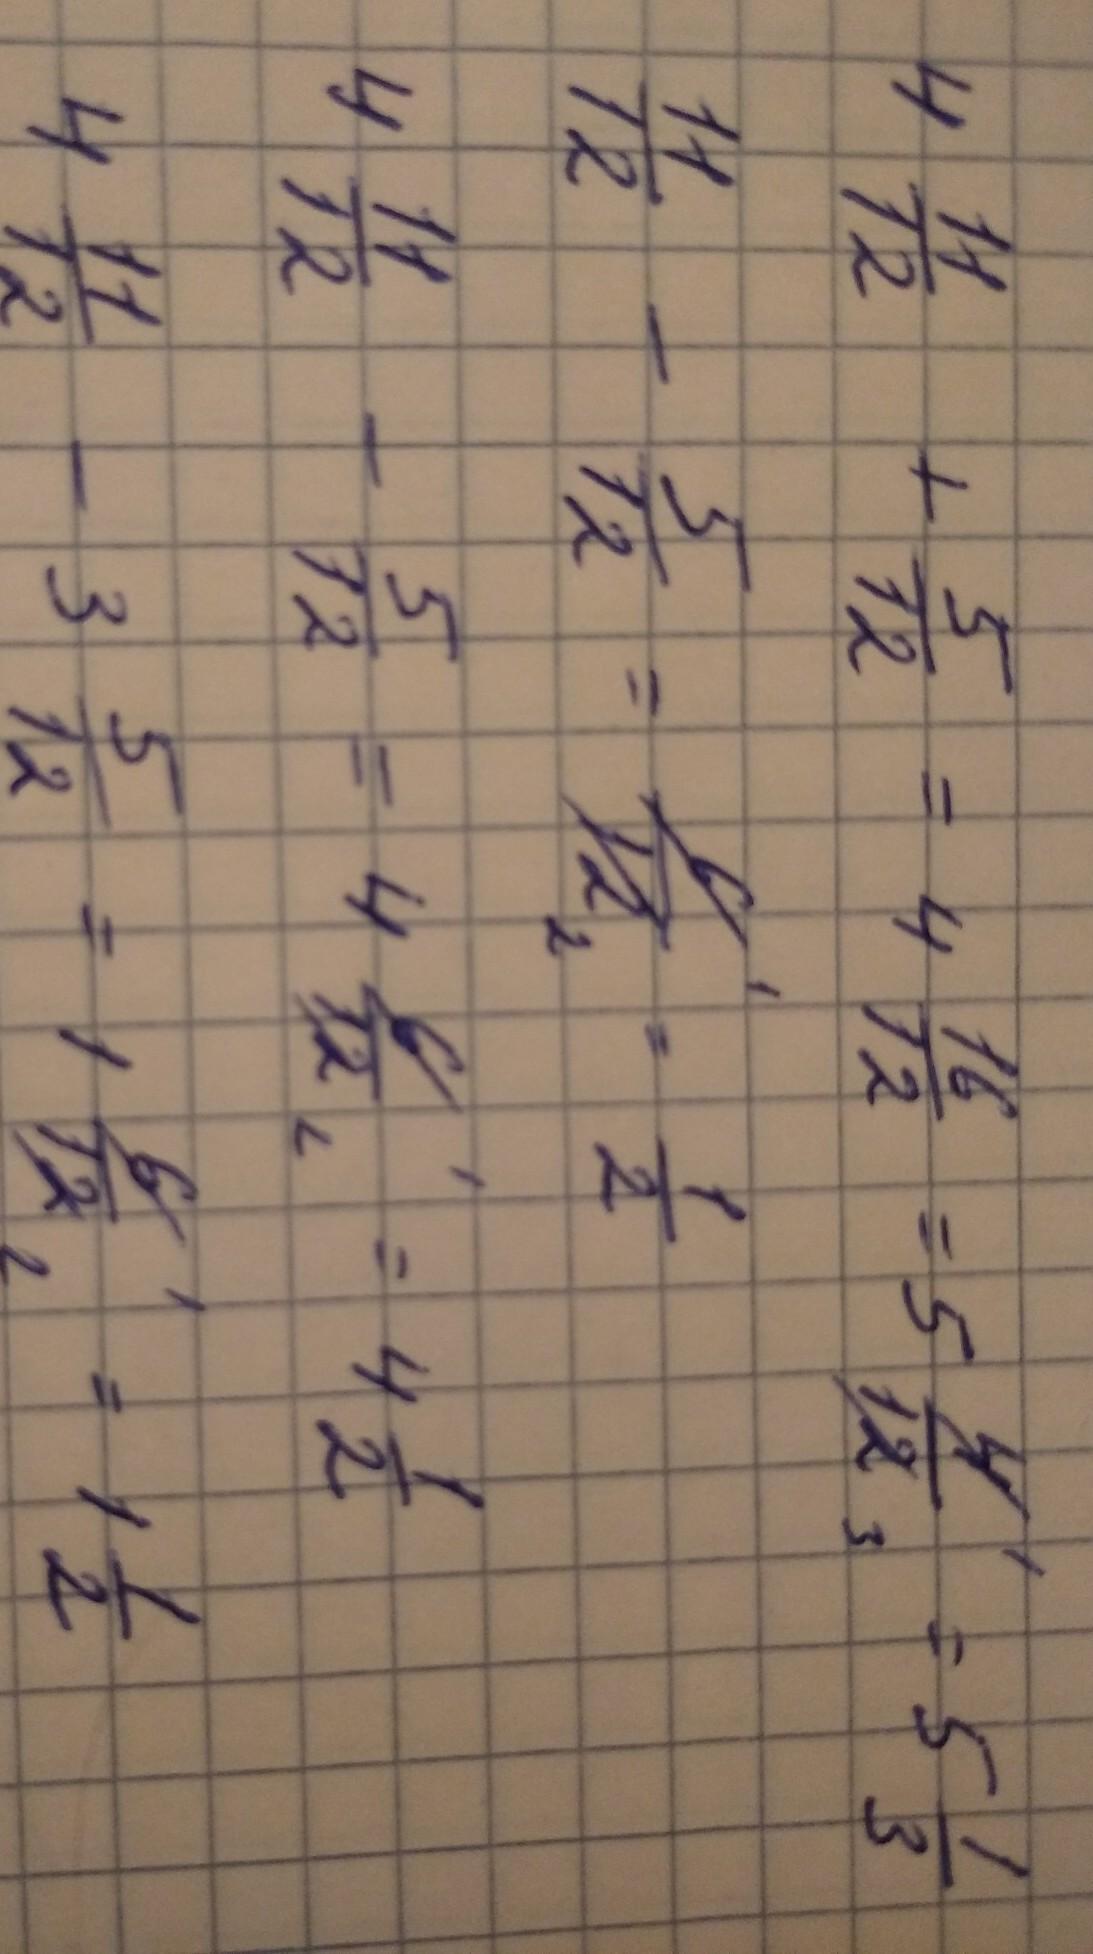 4 11/12 + 5/12 = 4 16/12 = 5 4/12 1 3 = 5 1/3
11/12 - 5/12 = 6/12 1 2 = 1/2
4 11/12 - 5/12 = 4 6/12 1 2 = 4 1/2
4 11/12 - 3 5/12 = 1 6/12 1 2 = 1 1/2